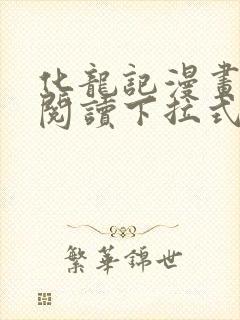 化龍記漫畫
閱讀下拉式
繁華錦世